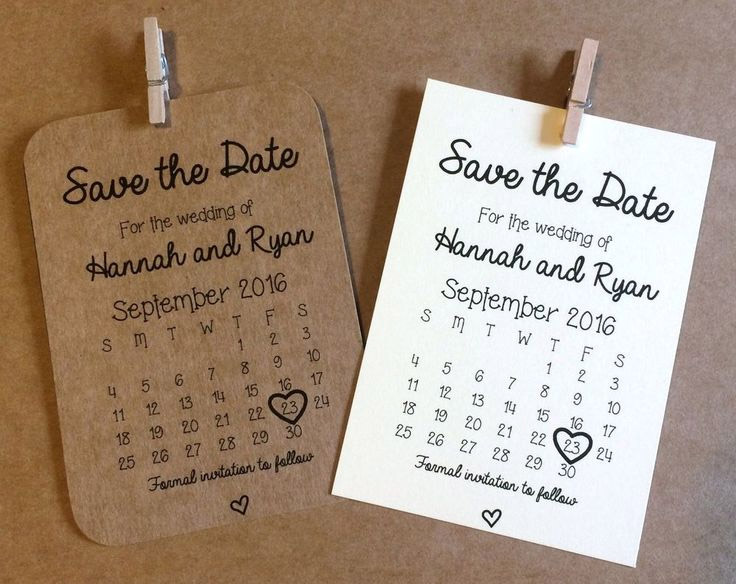 Save the Date
For the wedding of
Hannah and Ryan
September 2016
S M T W T F S
1 2 3
4 5 6 7 8 9 10
11 12 13 14 15 16 17
18 19 20 21 22 23 24
25 26 27 28 29 30
Formal invitation to follow
Save the Date
For the wedding of
Hannah and Ryan
September 2016
S M T W T F S
1 2 3
4 5 6 7 8 9 10
11 12 13 14 15 16 17
18 19 20 21 22 23 24
25 26 27 28 29 30
Formal invitation to follow